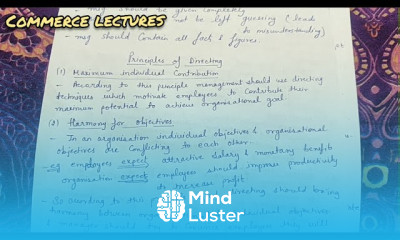 COMMERCE LECTURES
- msg should be given completely
not be left guessing (lead
to misunderstanding)
- msg should contain all fact & figures.
Principles of Directing
(1) Maximum individual Contribution
- According to this principle management should use directing
techniques which motivate employees to contribute their
maximum potential to achieve organisational goal
(2) Harmony for objectives
- In an organisation individual objectives & organisational
objectives are conflicting to each other.
- eg employees expect attractive salary & monetary benefits
organisation expect employees should improve productivity
to increase profit.
- According to this directing should bring
harmony between individual objectives
Mind
Luster